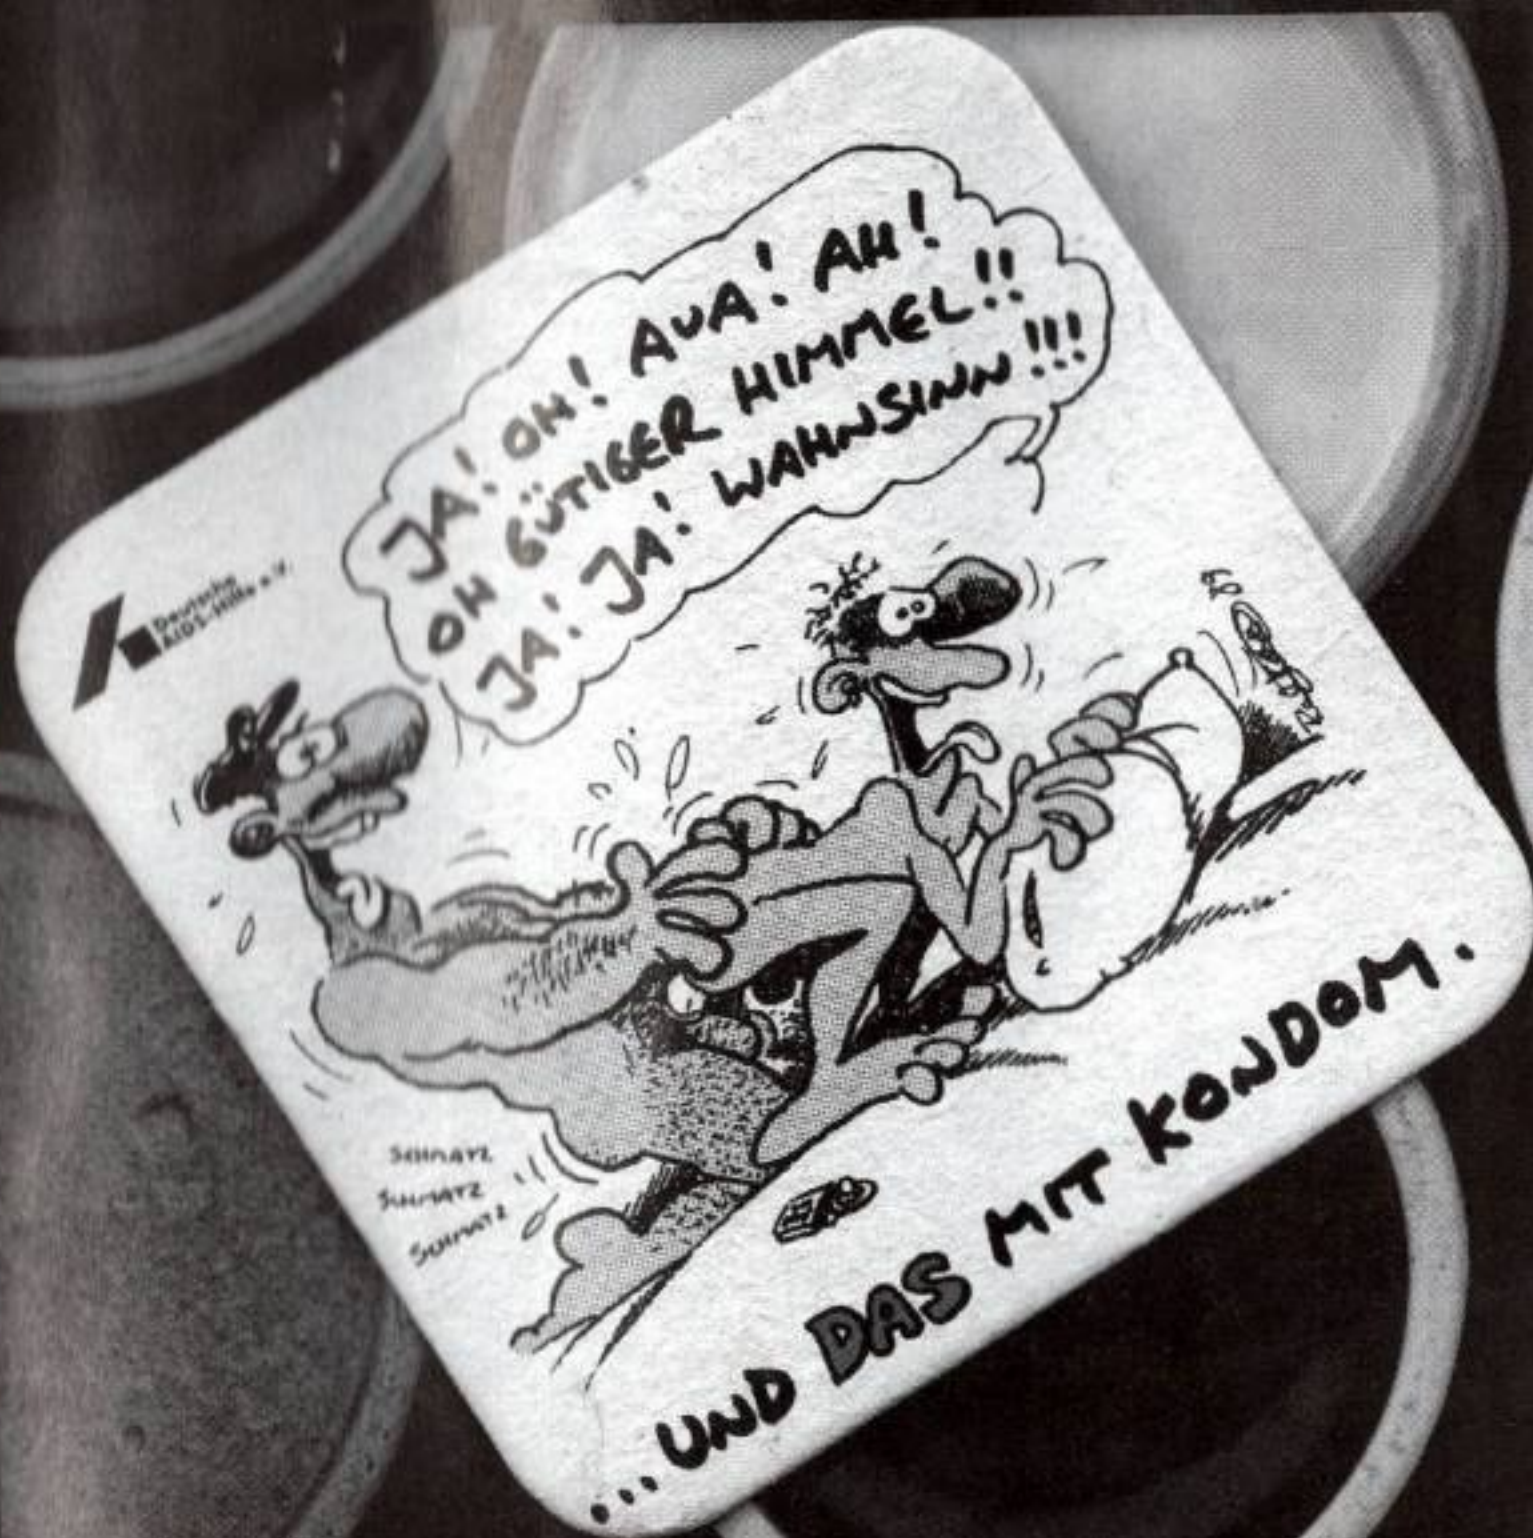 Deutsche
AIDS-Hilfe e.V.
JA! OH! AUA! AH!
OH GÜTIGER HIMMEL!!
JA! JA! WAHNSINN!!!
SCHMATZ
SCHMATZ
SCHMATZ
...UND DAS MIT KONDOM.